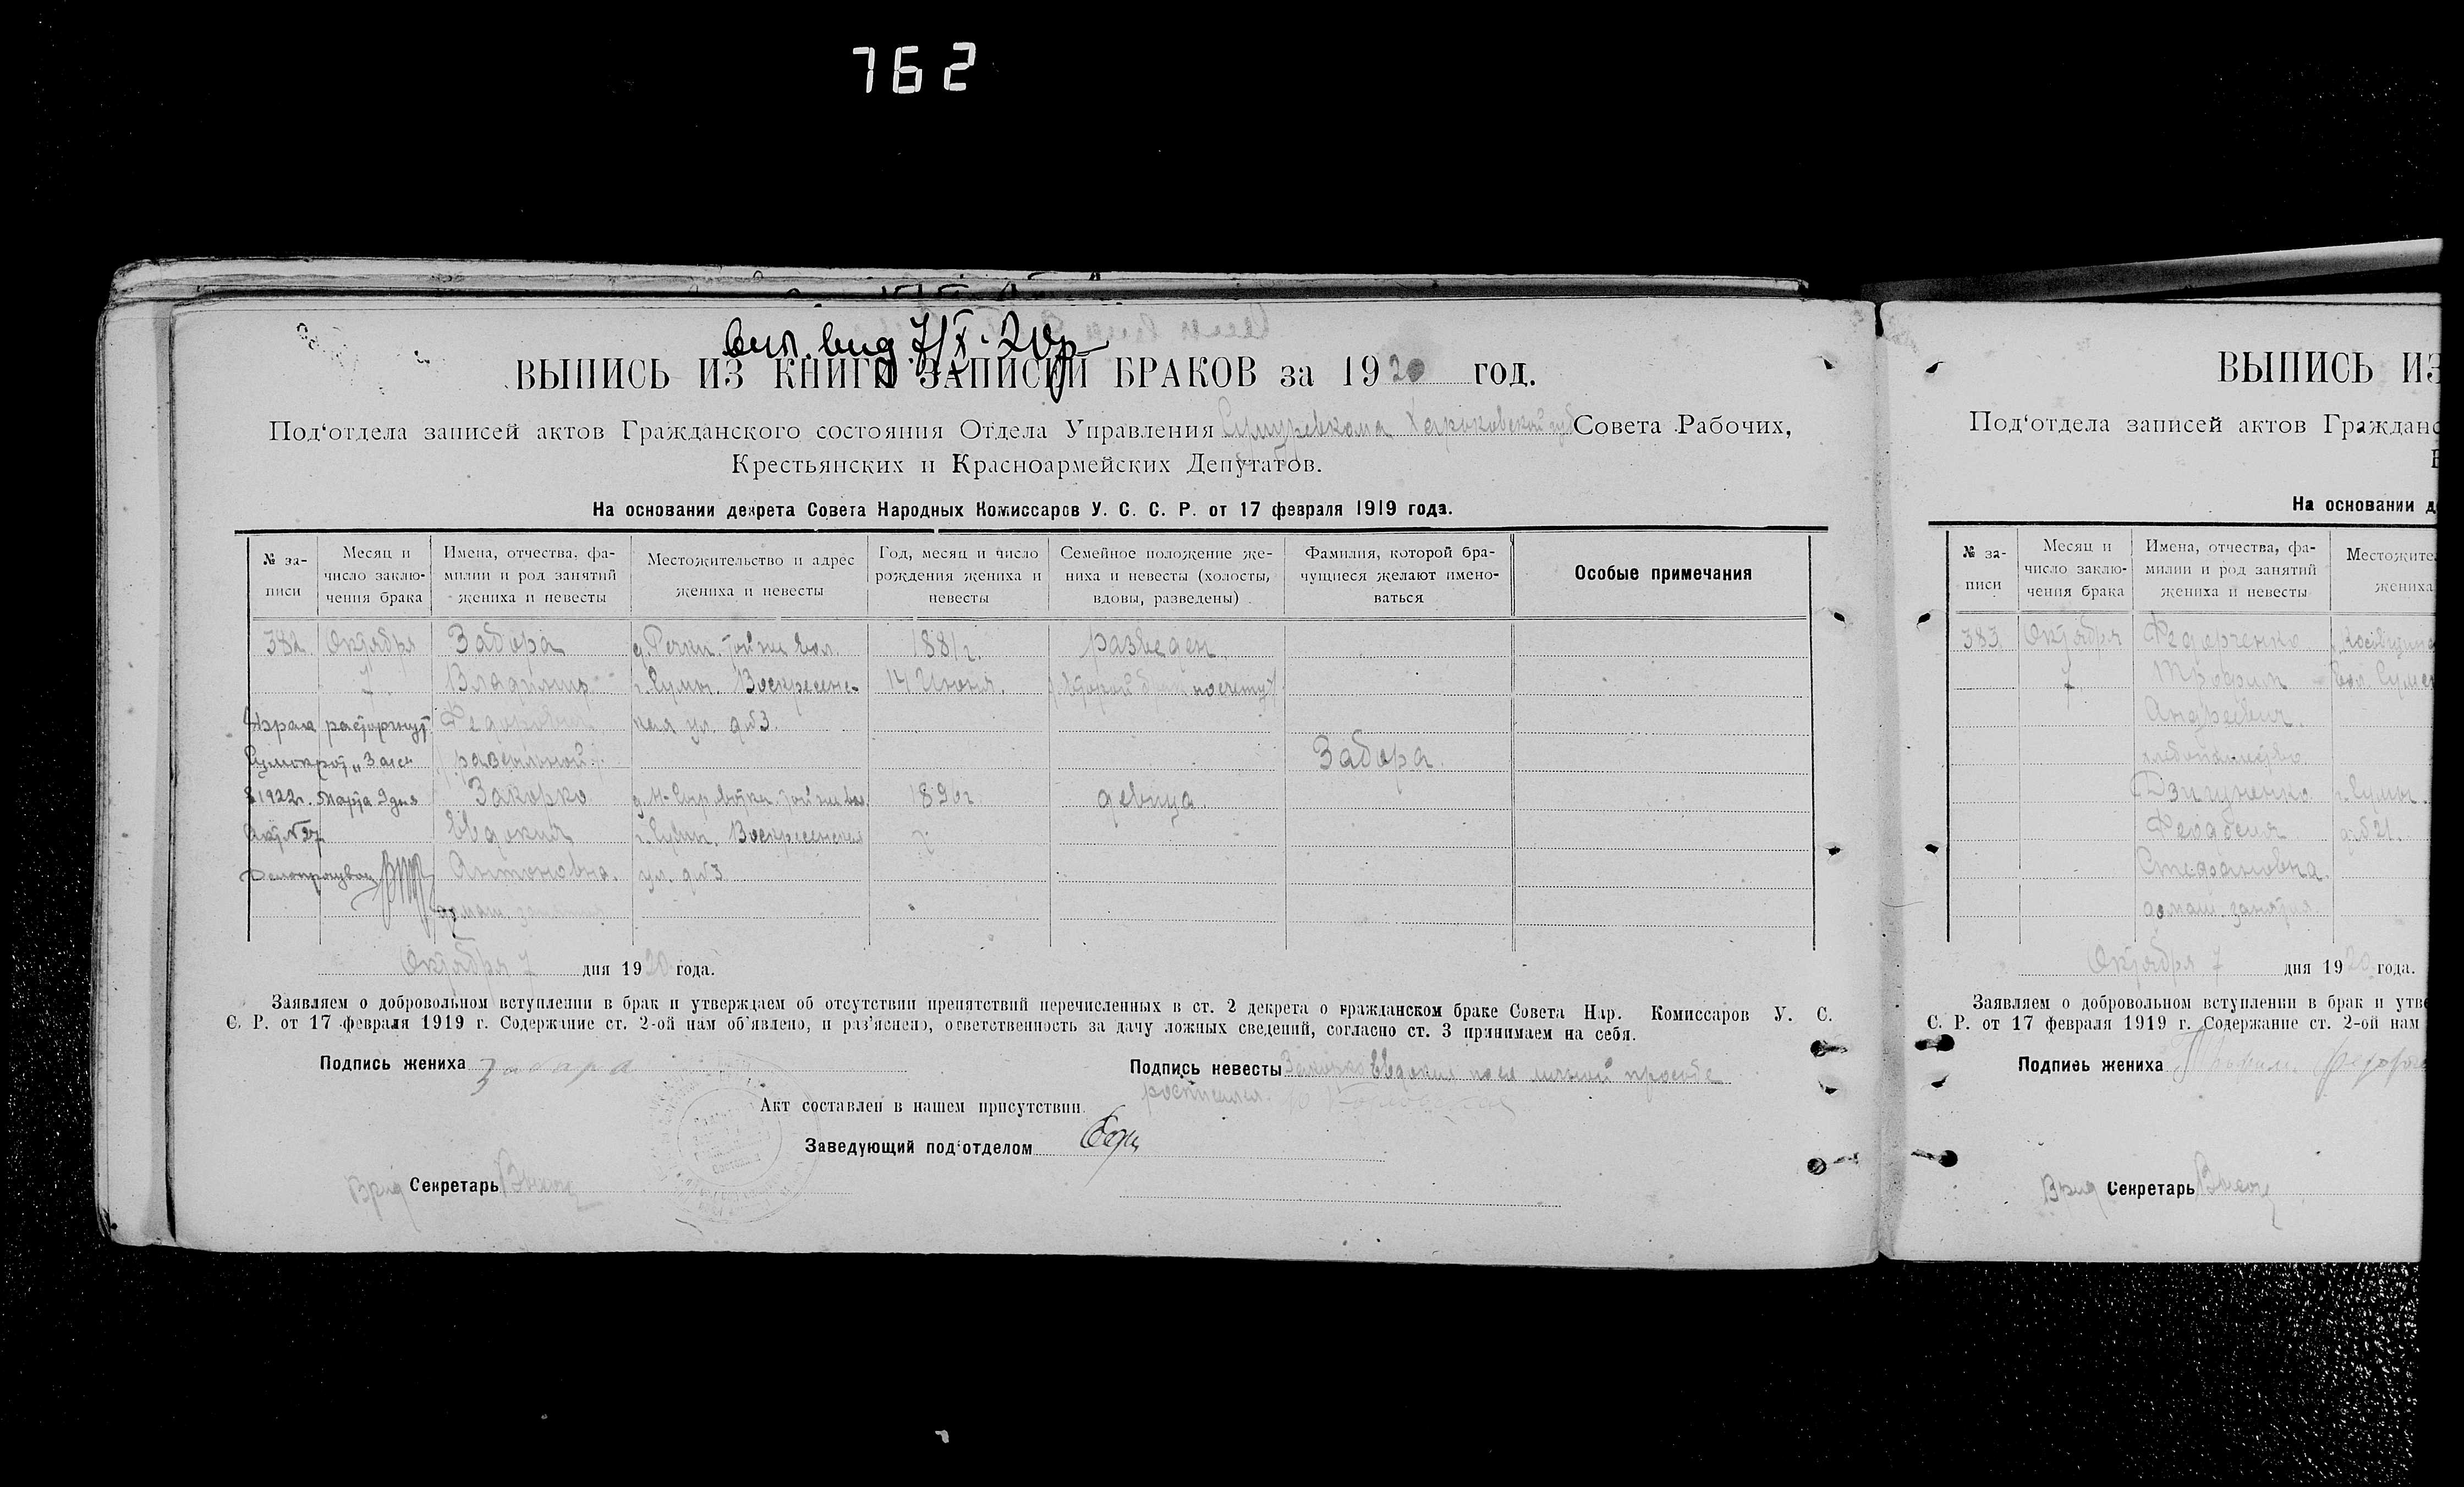 762
вид 7/X. 20
ВЫПИСЬ ИЗ КНИГИ ЗАПИСИ БРАКОВ за 1920 год.
Под‘отдела записей актов Гражданского состояния Отдела Управления Харьковской губ Совета Рабочих,
Крестьянских и Красноармейских Депутатов.
На основании декрета Совета Народных Комиссаров У. С. С. Р. от 17 февраля 1919 года.
№ за-
писи
Месяц и
число заклю-
чения брака
Имена, отчества, фа-
милии и род занятий
жениха и невесты
Местожительство и адрес
жениха и невесты
Год, месяц и число
рождения жениха и
невесты
Семейное положение же-
ниха и невесты (холосты,
вдовы, разведены)
Фамилия, которой бра-
чущиеся желают имено-
ваться
Особые примечания
382. Октября Забора д. Речки. той же вол. 1881 г. разведен.
7 Владимир г. Сумы. Воскресенс- 14 Июня. второй брак по счету
Брак расторгнут Федорович кая ул. д №3.
Забора.
1922 г. Марта 9 дня Закорко той же вол. 1890 г девица.
Акт № 27 Евдокия г. Сумы. Воскресенская
Антоновна. ул. д №3
домаш. занятия
Октября 7 дня 1920 года.
Заявляем о добровольном вступлении в брак и утверждаем об отсутствии препятствий перечисленных в ст. 2 декрета о гражданском браке Совета Нар. Комиссаров У. С.
С. Р. от 17 февраля 1919 г. Содержание ст. 2-ой нам об‘явлено, и раз‘яснено, ответственность за дачу ложных сведений, согласно ст. 3 принимаем на себя.
Подпись жениха Забора
Подпись невесты Закорко Евдокия личной просьбе
росписался.
Акт составлен в нашем присутствии.
Заведующий под‘отделом
Врид Секретарь
ВЫПИСЬ ИЗ
Под‘отдела записей актов Гражданс
На основании д
№ за-
писи
Месяц и
число заклю-
чения брака
Имена, отчества, фа-
милии и род занятий
жениха и невесты
Местожител
жениха
383 Октября Федорченко
7 Трофим вол. Сумск
Андреевич.
хлебопашество
Дзигуненко г. Сумы.
Феодосия д №21.
Стефановна.
домаш. занятия
Октября 7 дня 1920 года.
Заявляем о добровольном вступлении в брак и утве
С. Р. от 17 февраля 1919 г. Содержание ст. 2-ой нам
Подпись жениха Трофим
Врид Секретарь